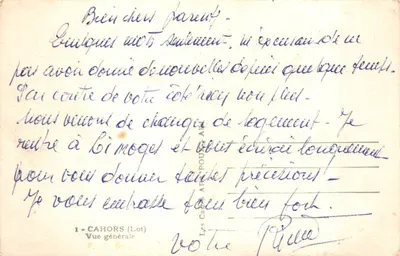 Bien chers parents.
Quelques mots seulement, m'excusant de ne
pas avoir donné de nouvelles depuis quelque temps.
Par contre de votre côté rien non plus.
Nous venons de changer de logement. Je
rentre à Limoges et vous écrirai longuement
pour vous donner toutes précisions.
Je vous embrasse tous bien fort.
2 - CAHORS (Lot)
Vue générale
votre